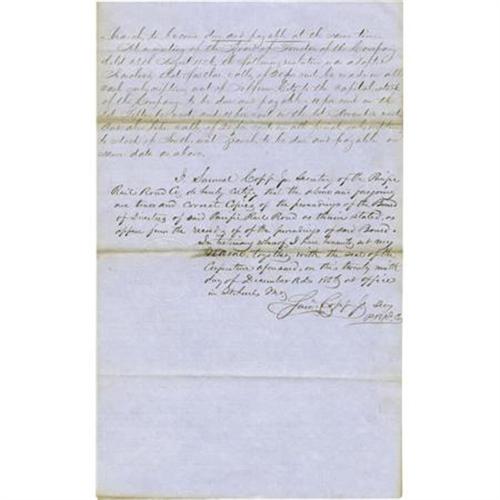 March, to become due and payable at the same time.
At a meeting of the Board of Directors of the Company
held 28th August 185 the following resolution was adopted
Resolved that further calls of 20 per cent be made on all
cash subscriptions out of Jefferson City to the capital stock
of the Company to be due and payable, 10 per cent on the
1st September next, and 10 per cent on the 1st November next
And also like calls of 20 per cent on all
to stock of the to be due and payable on
same date as above.
I, Samuel Copp Jr Secretary of the Pacific
Rail Road Co, do hereby certify, that the above and foregoing
are true and correct Copies of the proceedings of the Board
of Directors of said Pacific Rail Road as therein stated, as
appear from the records of the proceedings of said Board.
In testimony whereof, I have hereunto set my
Hand together with the seal of the
Corporation aforesaid, on this twenty ninth
day of December A.D. 185 at office
in St Louis Mo,
Saml Copp Jr Secy
P.R.R. Co